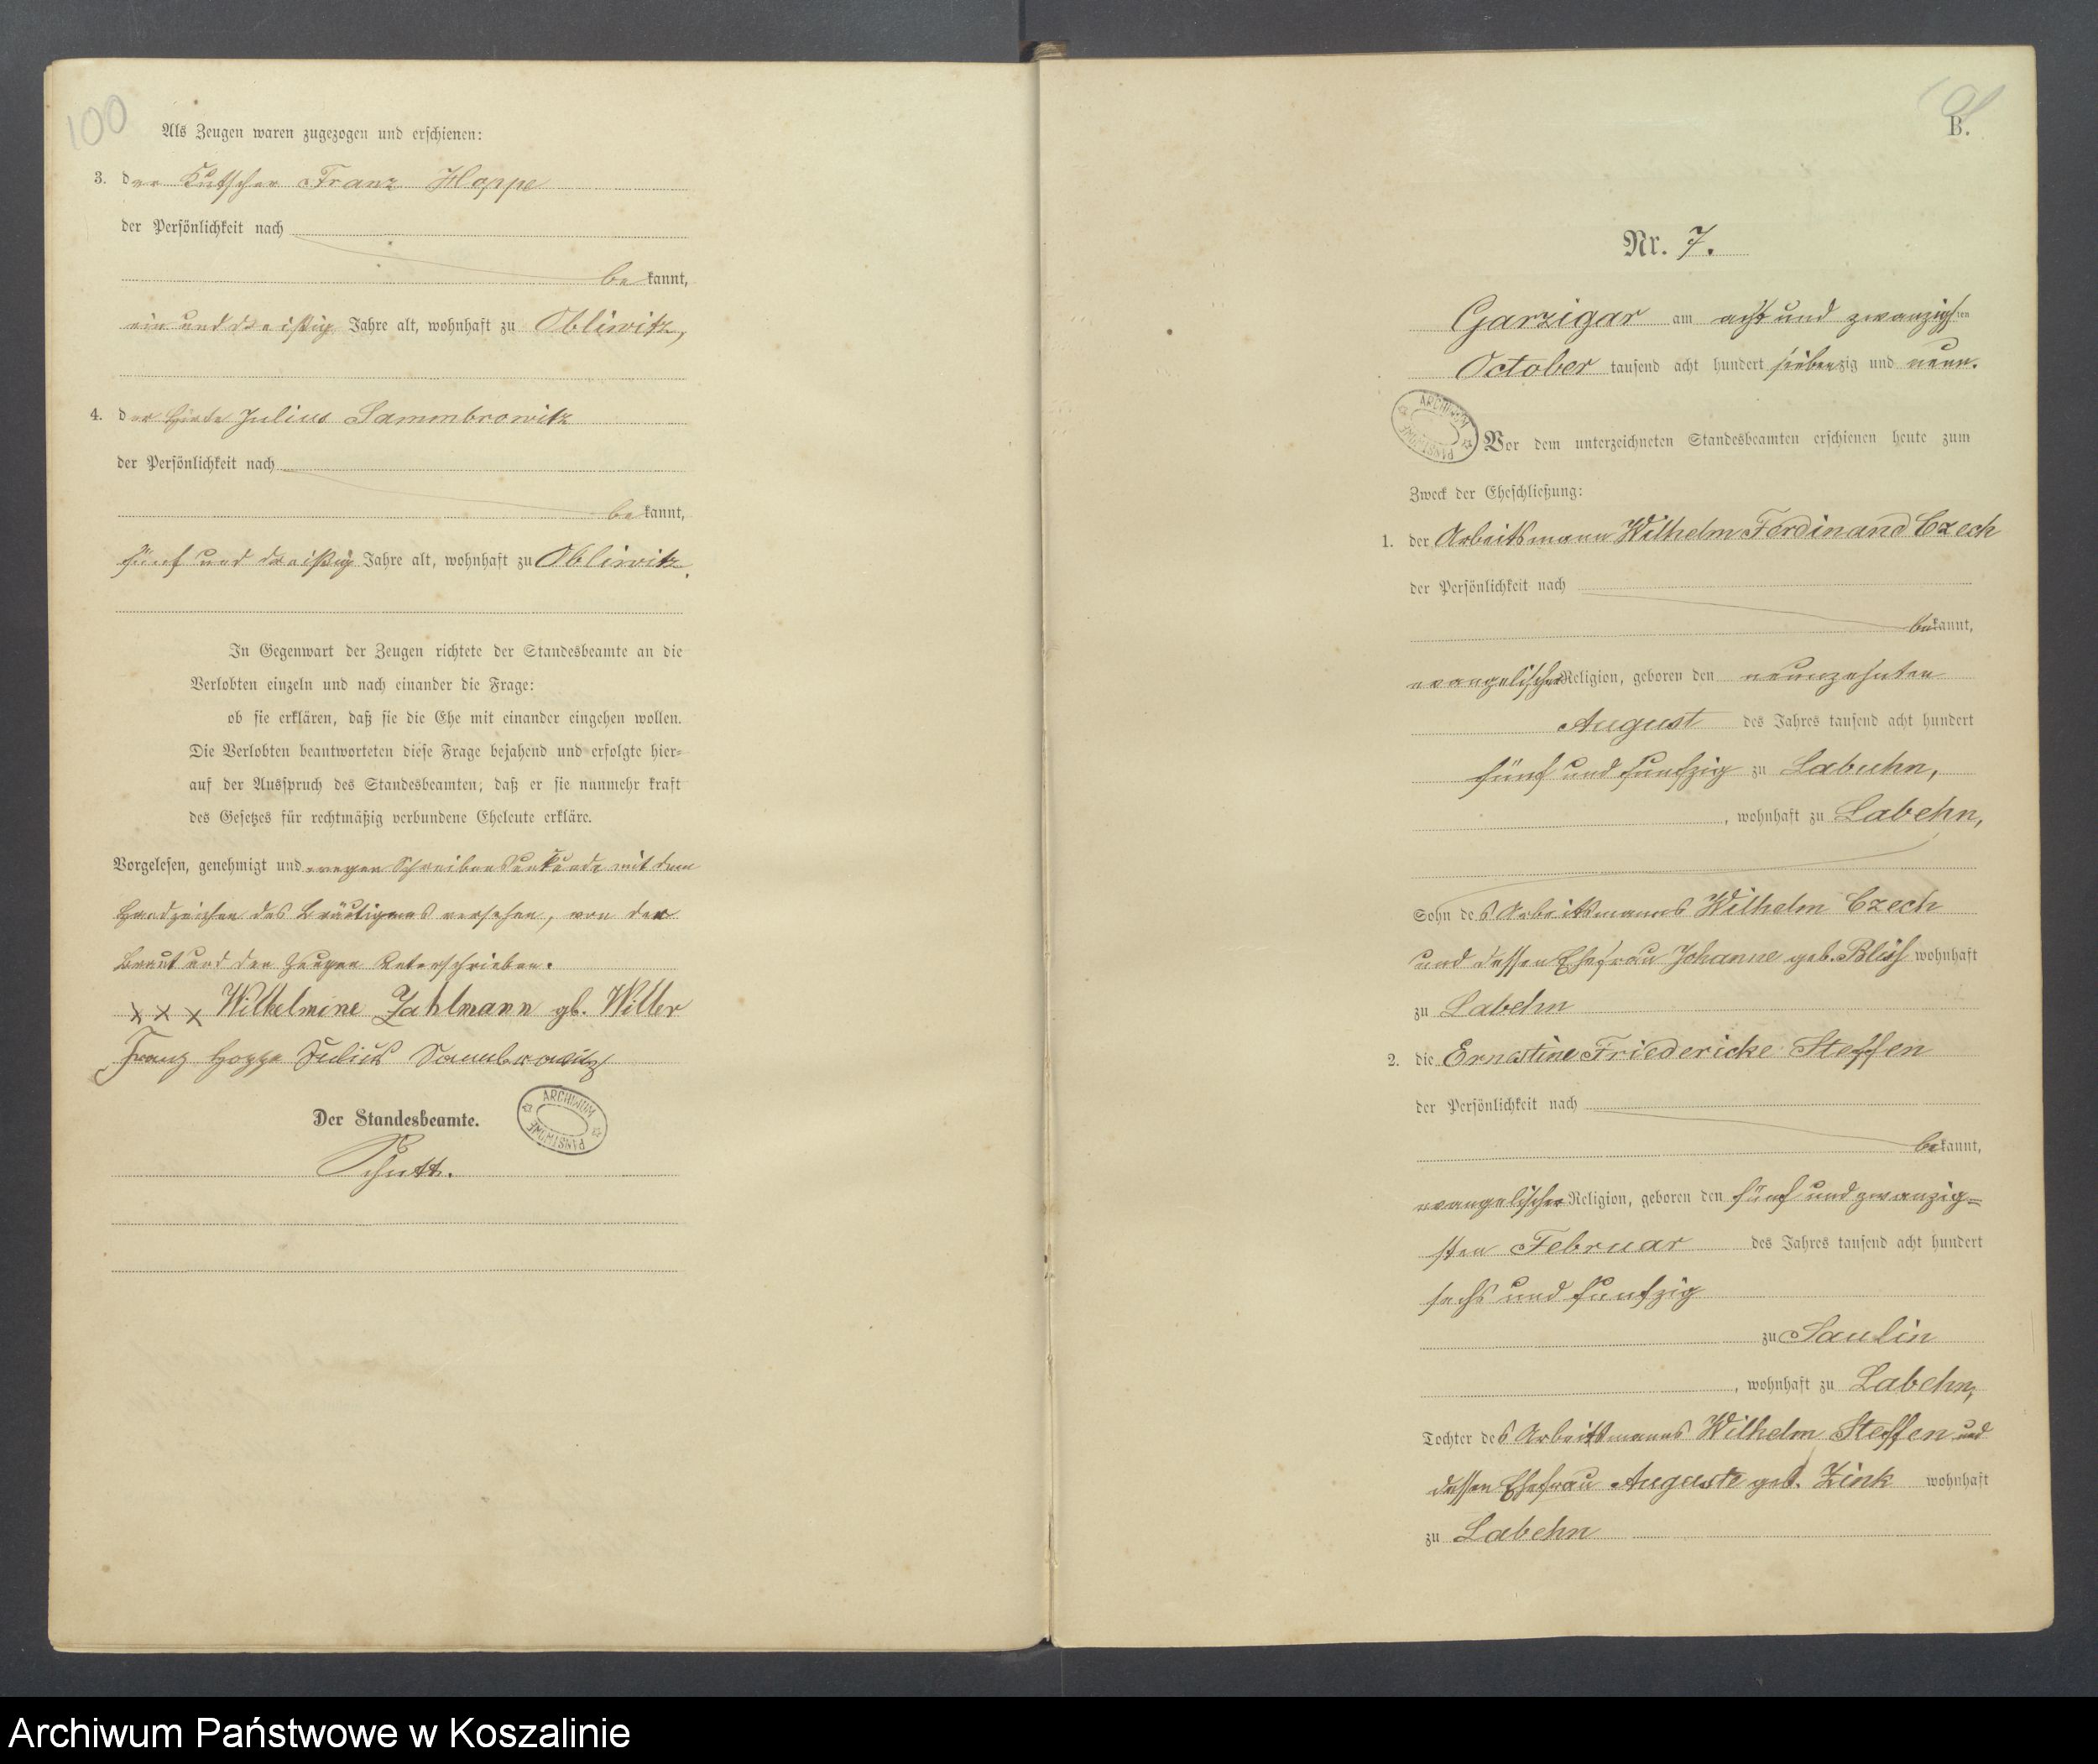 100
Als Zeugen waren zugezogen und erschienen:
3. der Kutscher Franz Hoppe
der Persönlichkeit nach
be kannt,
ein und dreißig Jahre alt, wohnhaft zu Obliwitz,
4. der Hirte Julius Sammbrowitz
der Persönlichkeit nach
be kannt,
fünf und dreißig Jahre alt, wohnhaft zu Obliwitz.
In Gegenwart der Zeugen richtete der Standesbeamte an die
Verlobten einzeln und nach einander die Frage:
ob sie erklären, daß sie die Ehe mit einander eingehen wollen.
Die Verlobten beantworteten diese Frage bejahend und erfolgte hier=
auf der Ausspruch des Standesbeamten, daß er sie nunmehr kraft
des Gesetzes für rechtmäßig verbundene Eheleute erkläre.
Vorgelesen, genehmigt und wegen Schreibensunkunde mit dem
Handzeichen des Bräutigams versehen, von der
Braut und den Zeugen unterschrieben.
x x x Wilhelmine Zahlmann gb. Witter
Franz Hoppe Julius Sambrowitz
Der Standesbeamte.
ARCHIWUM PAŃSTWOWE
Schutt.
B.
Nr. 7.
Garzigar am acht und zwanzigsten
October tausend acht hundert siebenzig und neun.
ARCHIWUM PAŃSTWOWE
Vor dem unterzeichneten Standesbeamten erschienen heute zum
Zweck der Eheschließung:
1. der Arbeitsmann Wilhelm Ferdinand Czech
der Persönlichkeit nach
bekannt,
evangelischer Religion, geboren den neunzehnten
August des Jahres tausend acht hundert
fünf und funfzig zu Labuhn,
, wohnhaft zu Labehn,
Sohn des Arbeitsmanns Wilhelm Czech
und dessen Ehefrau Johanne geb. wohnhaft
zu Labehn
2. die Ernestine Friedericke Steffen
der Persönlichkeit nach
bekannt,
evangelischer Religion, geboren den fünf und zwanzig=
sten Februar des Jahres tausend acht hundert
sechs und funfzig
zu Saulin
, wohnhaft zu Labehn,
Tochter des Arbeitsmanns Wilhelm Steffen und
dessen Ehefrau Auguste geb. Zink wohnhaft
zu Labehn
Archiwum Państwowe w Koszalinie